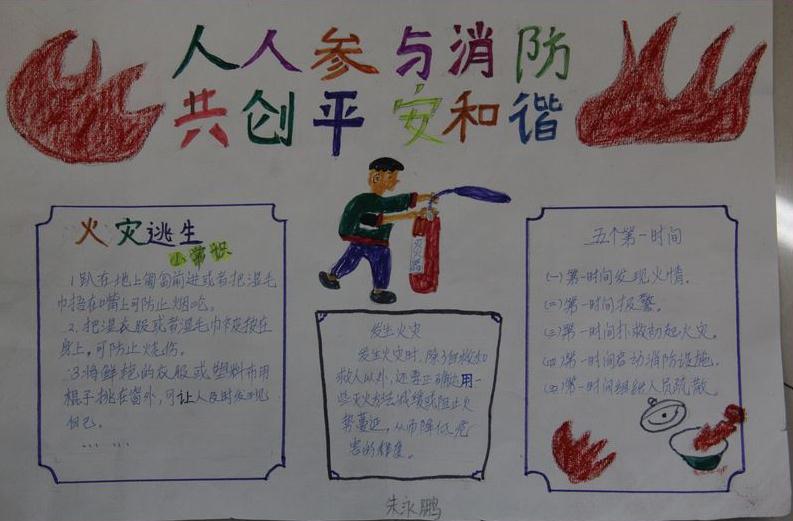 人人参与消防
共创平安和谐
火灾逃生
小常识
1趴在地上匍匐前进或者把湿毛
巾捂在嘴上可防止烟呛。
2、把湿衣服或者湿毛巾披在
身上,可防止烧伤。
3将鲜艳的衣服或塑料布用
棍子挑在窗外,可让人及时发现
自己。
... ...
灭火器
发生火灾
发生火灾时,除了自救和
救人以外,还要正确用一
些灭火方法减缓或阻止火
势蔓延,从而降低危
害的程度。
五个第一时间
(一)第一时间发现火情。
(二)第一时间报警。
(三)第一时间扑救初起火灾。
(四)第一时间启动消防设施。
(五)第一时间组织人员疏散。
朱永鹏